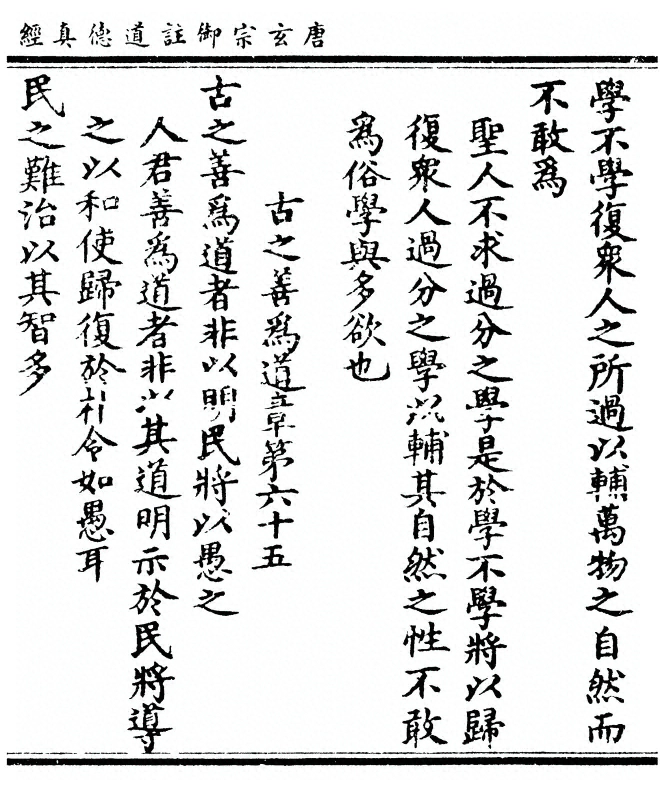 唐玄宗御註道德真經
學不學復衆人之所過以輔萬物之自然而
不敢爲
聖人不求過分之學是於學不學將以歸
復衆人過分之學以輔其自然之性不敢
爲俗學與多欲也
古之善爲道章第六十五
古之善爲道者非以明民將以愚之
人君善爲道者非以其道明示於民將導
之以和使歸復於朴令如愚耳
民之難治以其智多